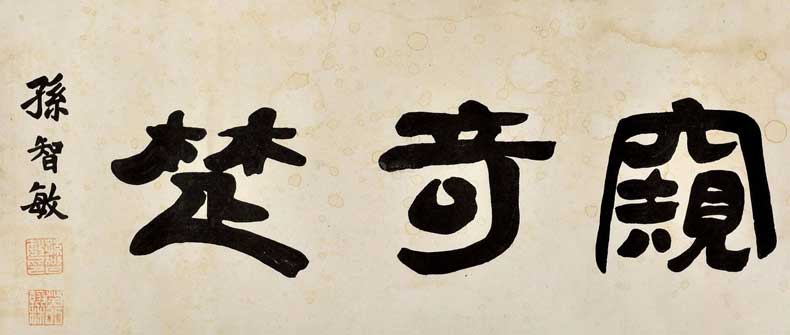 窺奇楚
孫智敏